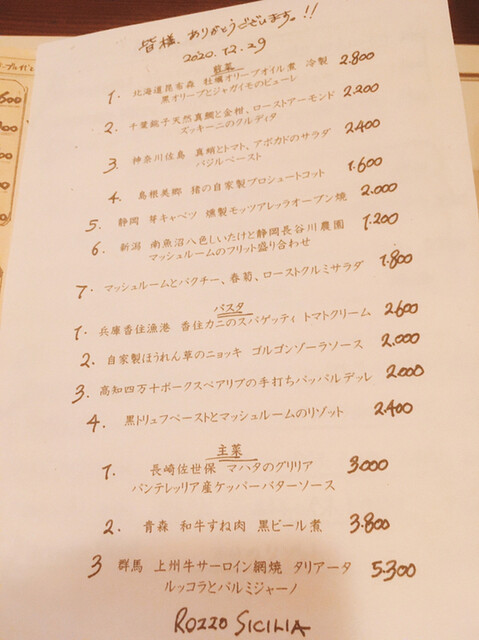 皆様、ありがとうございます。!!
2020.12.29
前菜
1. 北海道昆布森 牡蠣オリーブオイル煮 冷製 2.800
黒オリーブとジャガイモのピューレ
2. 千葉銚子天然真鯛と金柑、ローストアーモンド 2.200
ズッキーニのクルディタ
3. 神奈川佐島 真蛸とトマト、アボカドのサラダ 2.400
バジルペースト
4. 島根美郷 猪の自家製プロシュートコット 1.600
5. 静岡 芽キャベツ 燻製モッツアレッラオーブン焼 2.000
6. 新潟 南魚沼八色しいたけと静岡長谷川農園 1.200
マッシュルームのフリット盛り合わせ
7. マッシュルームとパクチー、春菊、ローストクルミサラダ 1.800
パスタ
1. 兵庫香住漁港 香住カニのスパゲッティ トマトクリーム 2.600
2. 自家製ほうれん草のニョッキ ゴルゴンゾーラソース 2.000
3. 高知四万十ポークスペアリブの手打ちパッパルデッレ 2.000
4. 黒トリュフペーストとマッシュルームのリゾット 2.400
主菜
1. 長崎佐世保 マハタのグリリア 3.000
パンテレッリア産ケッパーバターソース
2. 青森 和牛すね肉 黒ビール煮 3.800
3 群馬 上州牛サーロイン網焼 タリアータ 5.300
ルッコラとパルミジャーノ
ROZZO SICILIA